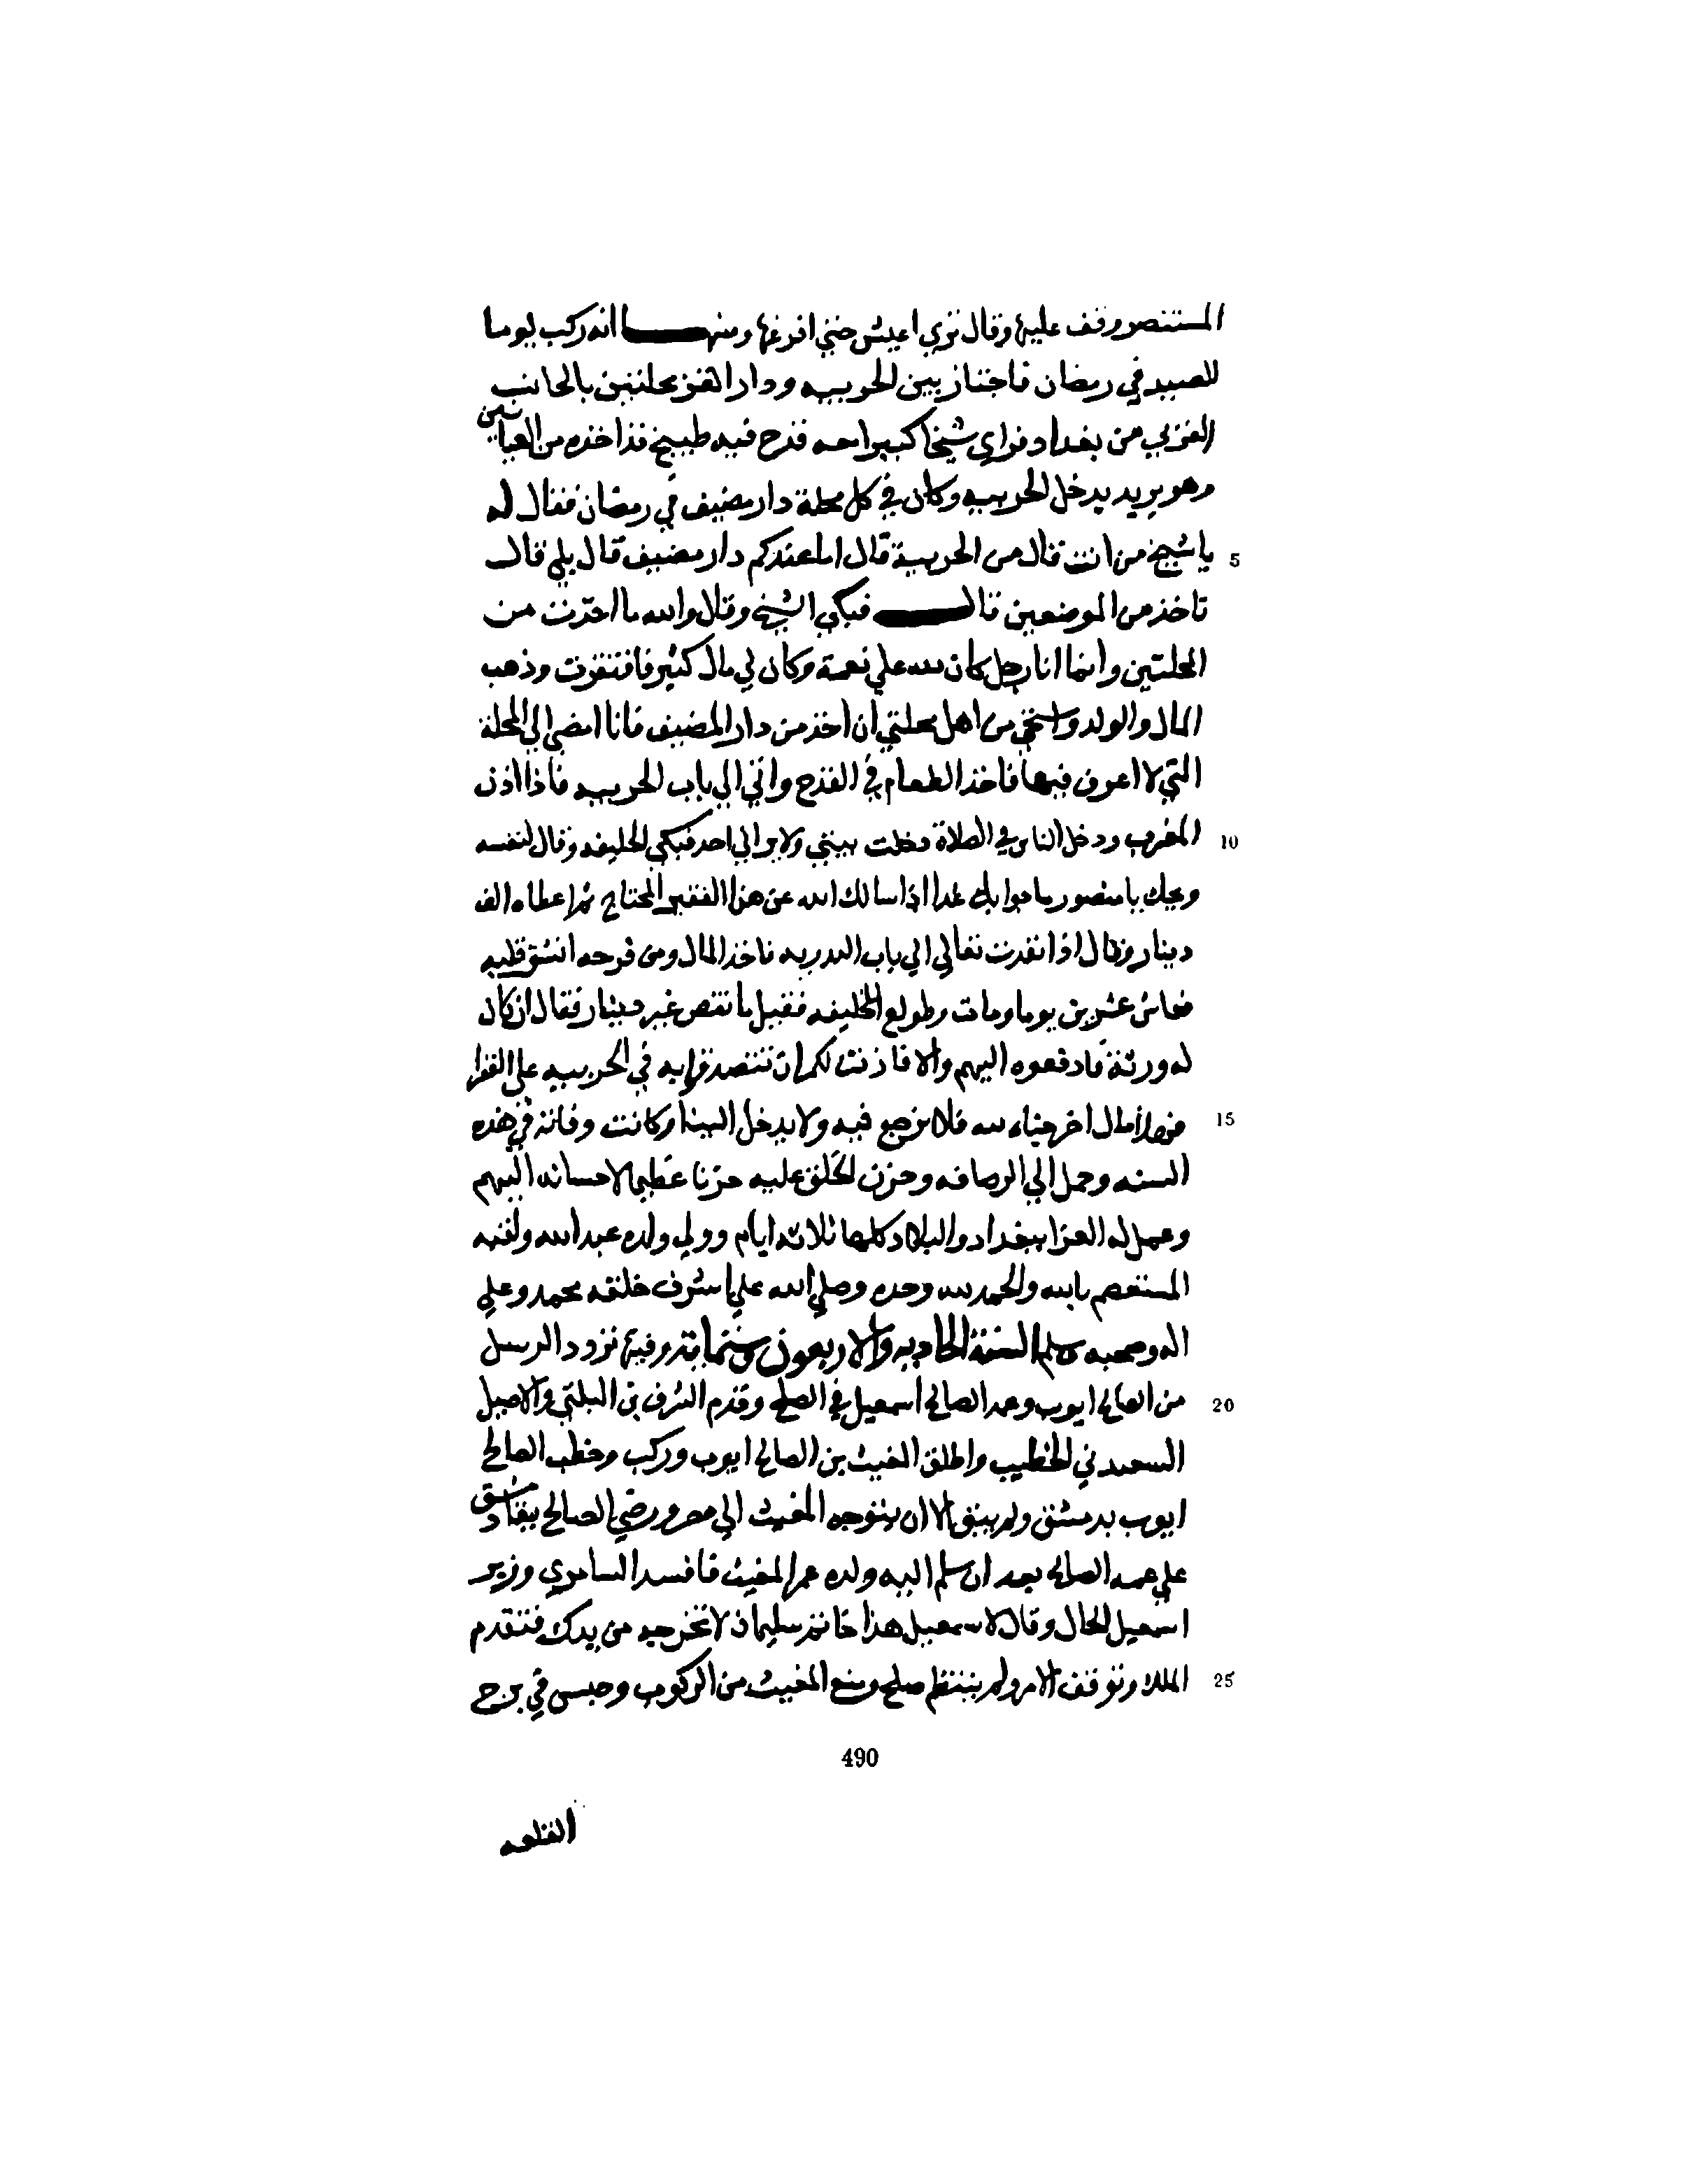 المستنصر وقف عليها وقال ترى اعيش حتى افرغها ومنها انه ركب يوما
للصيد في رمضان فاجتاز بين الحربيه ودار القز محلتين بالجانب
الغربي من بغداد فراي شيخا كبيرا معه قدح فيه طبيخ قد اخذه من العتابيين
وهو يريد يدخل الحربيه وكان في كل محلة دار مضيف في رمضان فقال له
5 يا شيخ من انت قال من الحربية قال اما عندكم دار مضيف قال بلي قال
تاخذ من الموضعين قال فبكي الشيخ وقال والله ما اخذت من
المحلتين وانما انا رجل كان لله علي نعمة وكان لي مال كثير فافتقرت وذهب
المال والولد واستحي من اهل محلتي ان اخذ من دار المضيف فانا امضي الي المحلة
التي لا اعرف فيها فاخذ الطعام في القدح واتي الي باب الحربيه فاذا اذن
10 المغرب ودخل الناس في الصلاة دخلت بيتي ولا يراني احد فبكي الخليفه وقال لنفسه
ويحك يا منصور ما جوابك غدا اذا سالك الله عن هذا الفقير المحتاج ثم اعطاه الف
دينار وقال اذا نفدت تعالي الي باب البدريه تاخذ المال ومن فرحه انشق قلبه
فعاش عشرين يوما ومات وطولع الخليفه فقيل ما نقص غير دينار فقال ان كان
له ورثة فادفعوه اليهم والا فاذنت لكم ان تتصدقوا به في الحربيه على الفقرا
15 فهذا مال اخرجناه لله فلا نرجع فيه ولا يدخل الينا وكانت وفاته في هذه
السنه وحمل الي الرصافه وحزن الخلق عليه حزنا عظيما لاحسانه اليهم
وعمل له العزا ببغداد والبلاد كلها ثلاثه ايام وولي ولده عبد الله ولقبه
المستعصم بالله والحمد لله وحده وصلى الله علي اشرف خلقه محمد وعلي
اله وصحبه وسلم السنة الحاديه والاربعون وستمائة وفيها تردد الرسل
20 من الصالح ايوب وعمه الصالح اسمعيل في الصلح وقدم الشرف بن البلتي والاصيل
السعردي الخطيب واطلق المغيث بن الصالح ايوب وركب وخطب الصالح
ايوب بدمشق ولم يبق الا ان يتوجه المغيث الي مصر ورضي الصالح ببقا دمشق
علي عمه الصالح بعد ان سلم اليه ولده عمر المغيث فافسد السامري وزير
اسمعيل الحال وقال لاسمعيل هذا خاتم سليمان لا تخرجه من يدك فتعدم
25 الملك وتوقف الامر ولم ينتظم صلح ومنع المغيث من الركوب وحبس في برج
490
القلعه